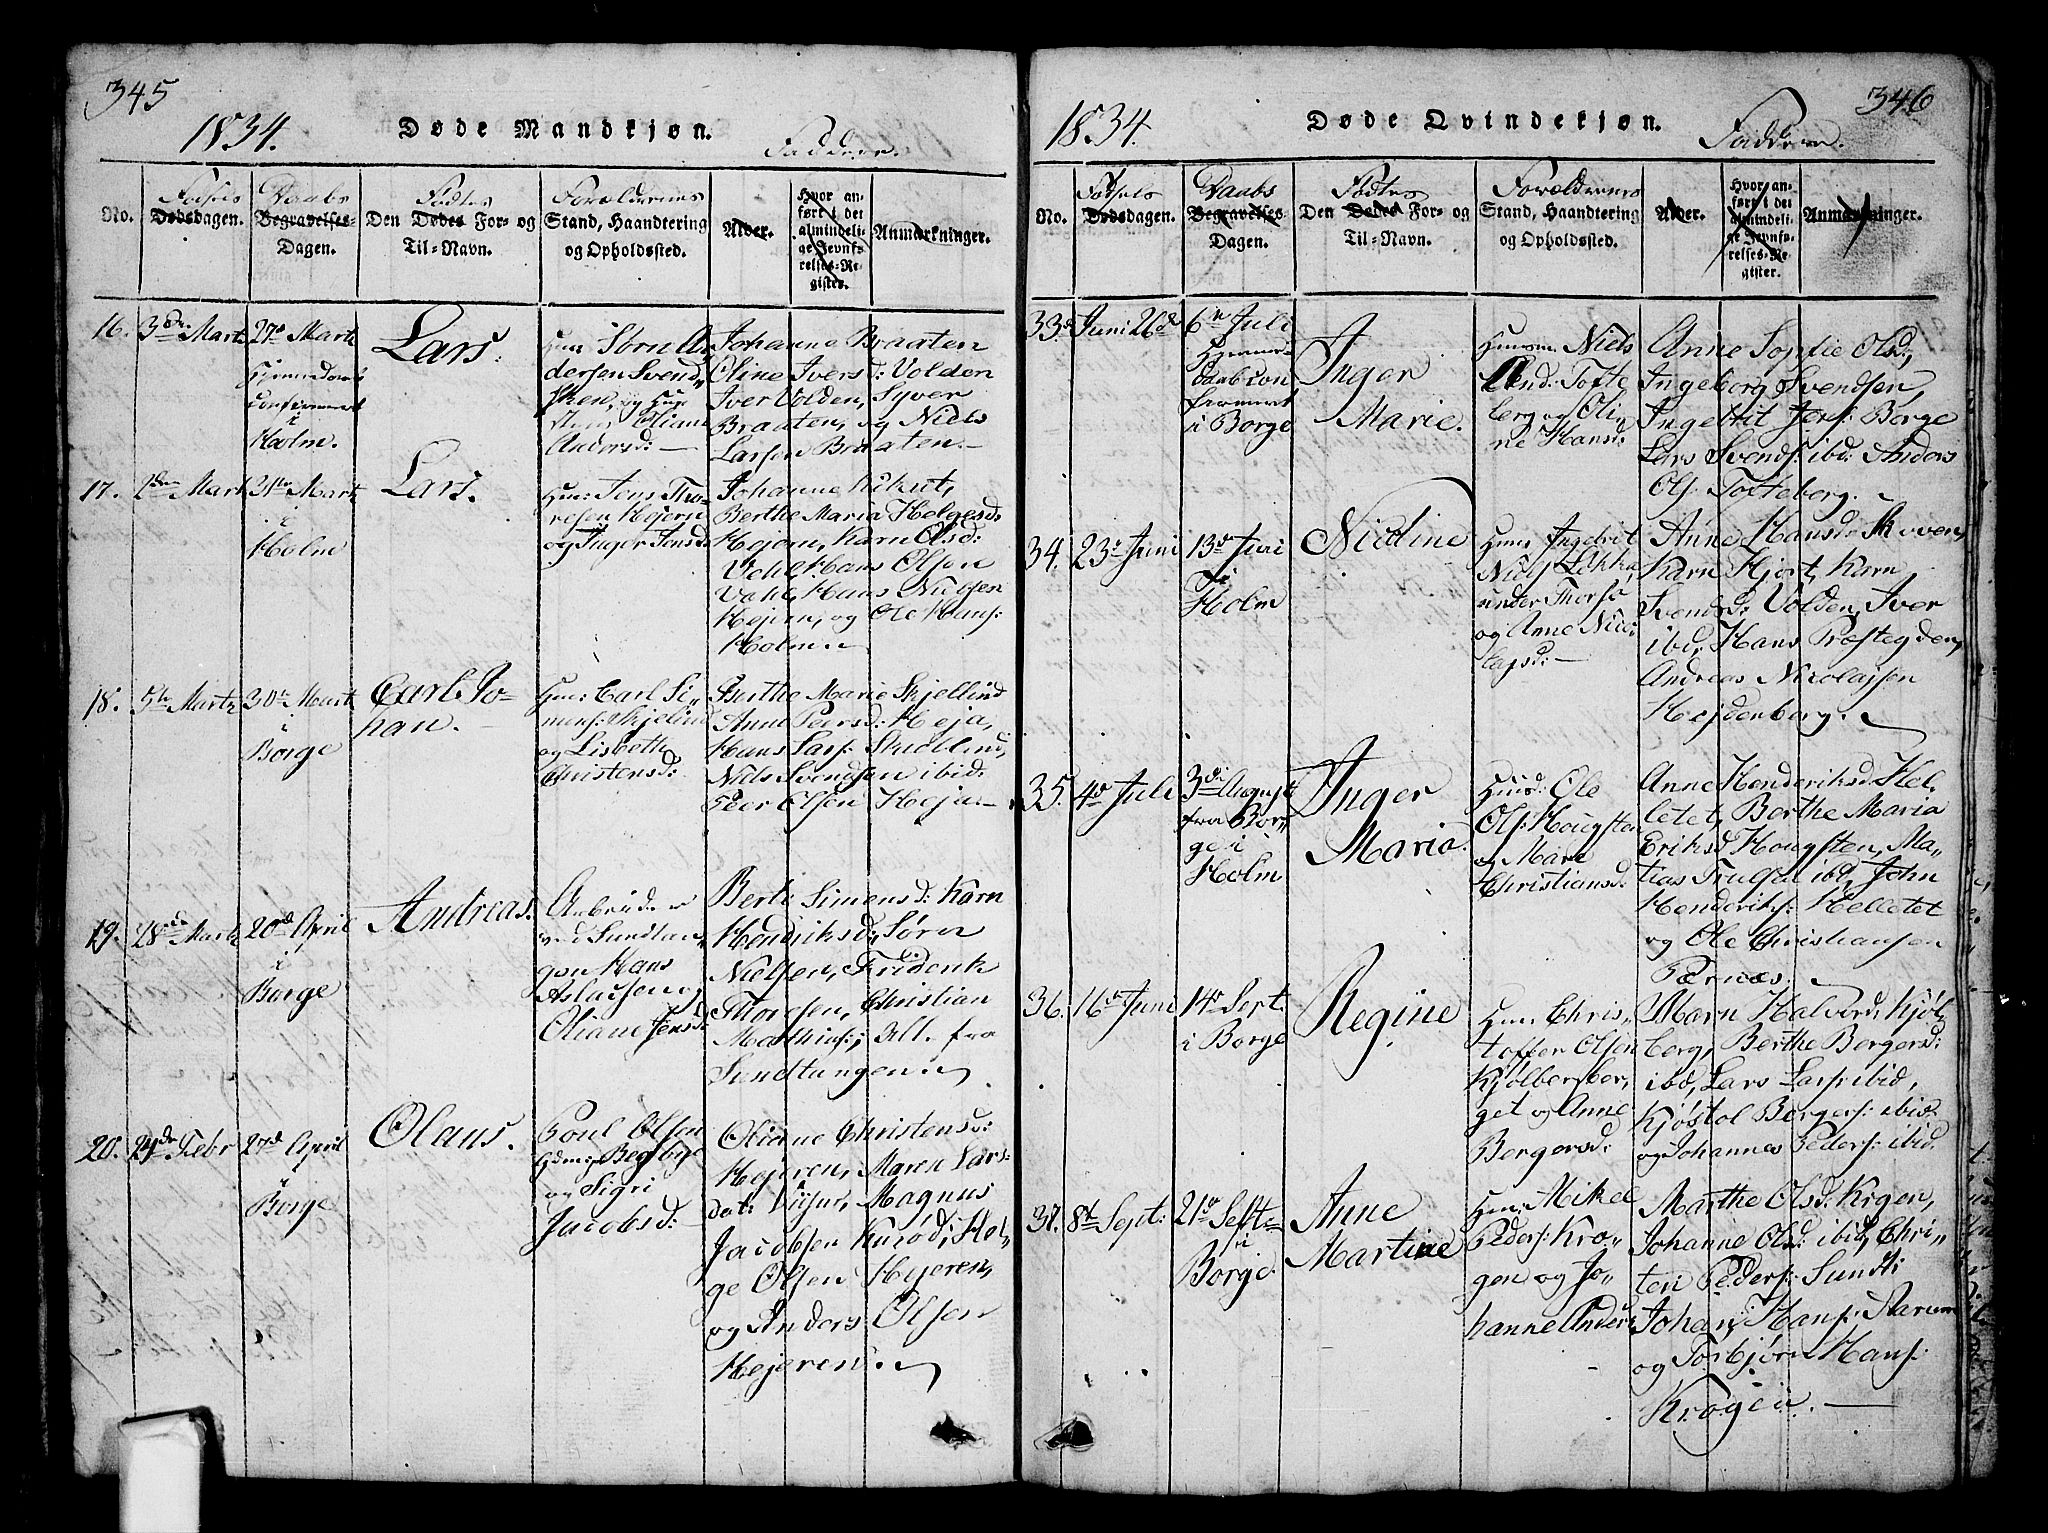 345
1834.
Døde Mandkjøn.
Faddere.
No.
Fødsels
Dødsdagen.
Daabs
Begravelses-
Dagen.
Fødtes
Den Dødes For- og
Til-Navn.
Forældrenes
Stand, Haandtering
og Opholdssted.
Alder.
Hvor an-
ført i det
almindeli-
ge Jevnfø-
relses-Re-
gister.
Anmærkninger.
16. 3die Martz
27d Martz
Hjemmedøbt
confirmeret
i
Holm.
Lars.
Huus: Sørn An
dersen Svend
Andersd:
Johanne Braaten
Oline Iversd: Volden
Iver Volden, Syver
Braaten, og Niels
Larsen Braaten.
17.
Martz
Martz
i
Holm
Lars.
Huus: Jens Tho-
resen Hejern
og Inger Jensd:
Johanne
Berthe Maria Helgesd:
Hejern, Karn Olsd:
Vahl, Hans Olsen
Vahl, Hans Nielsen
Hejern, og Ole Hans:
Holm.
18. 5te Martz
30te Mart
i
Borge
Carl Jo-
han.
Huus: Carl Si-
mens: Skjelind
og Lisbeth
Christensd:
Berthe Marie Skjellind
Anne Peersd: Heja,
Hans Lars: Skiellind,
Niels Svendsen ibid:
Peer Olsen Heja.
19. 18de Martz
20de April
i
Borge
Andreas.
Arbeid:
ved Sundtan
gen Hans
Aslaksen og
Oliane Jensd:
Berte Simensd: Karn
Hendriksd: Sørn
Nielsen, Friderik
Thoresen, Christian
Mathias: Alt. fra
Sundtangen.
20. 24de Febr
27d April
i
Borge
Olaus.
Poul Olsen
Huus: Begbye
og Sigri
Jacobsd:
Oliane Christensd:
Hejeren, Maren Lars-
dat: Viijur, Magnus
Jacobsen Kurød, Hel-
ge Olsen Hejeren,
og Anders Olsen
Hejeren.
346
1834.
Døde Qvindekjøn.
Faddere.
No.
Fødsels
Dødsdagen.
Daabs
Begravelses
Dagen.
Fødtes
Den Dødes For- og
Til-Navn.
Forældrenes
Stand, Haandtering
og Opholdssted.
Alder.
Hvor an-
ført i det
almindeli-
ge Jevnfø-
relses-Re-
gister.
Anmærkninger.
33. Juni 26d
6te Juli
Hjemme-
daab con
firmert
i Borge
Inger
Marie.
Huusm: Niels
And: Tofte
berg og Oli-
ne Hansd:
Anne Sophie Olsd,
Ingeborg Svendsen,
Ingebrit Jens: Borge
Lars Svends: ibd: Anders
Ols: Tofteberg.
34. 23de Juni
13de Juli
i
Holm
Nicoline
Huus: Ingebrit
Niels: Lekka,
under Thorsø
og Anne Nico
lajsd:
Anne Hansd: Skoven
Karn Hjort, Karn
Svendsd: Volden, Iver
ibid, Hans Præstegden,
Andreas Nicolajsen
Hejdenberg.
35. 4de Juli
3die August
fra Bor-
ge i
Holm
Inger
Maria.
Huusd: Ole
Ols: Hougsten
og Mare
Christiansd:
Anne Henderiksd: Hel-
letet, Berthe Maria
Eriksd Hougsten, Ma-
tias Trulsen ibid, John
Henderiks: Helletet
og Ole Christiansen
Pærnæs.
36. 16de Juni
14de Sept.
i Borge
Regine
Huus: Chris-
toffer Olsen
Kjølberber-
get og Anne
Borgersd:
Marn Halvord, Kjøl-
berg, Berthe Borgersd:
ibid, Lars Lars: ibid,
Kjøstol Borgers: ibid
og Johannes Peders: ibid.
37. 8de Sept:
21de Sept:
i
Borge
Anne
Martine
Huus: Mikel
Peders: Kro-
gen og Jo-
hanne Anders
Marthe Olsd: Krgen,
Johanne Olsd: ibid, Chri-
sten Peders: Sundt:
Johan Hans:
og Torbjørn Hans:
Krogen.